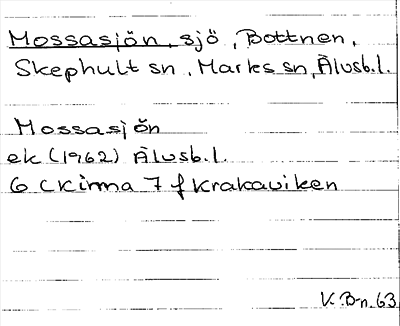 Mossasjön, sjö, Bottnen,
Skephult sn, Marks sn, Älvsb.l.
Mossasjön
ek (1962) Älvsb.l.
6 C Kinna 7 f Krakaviken
V.B-n.63